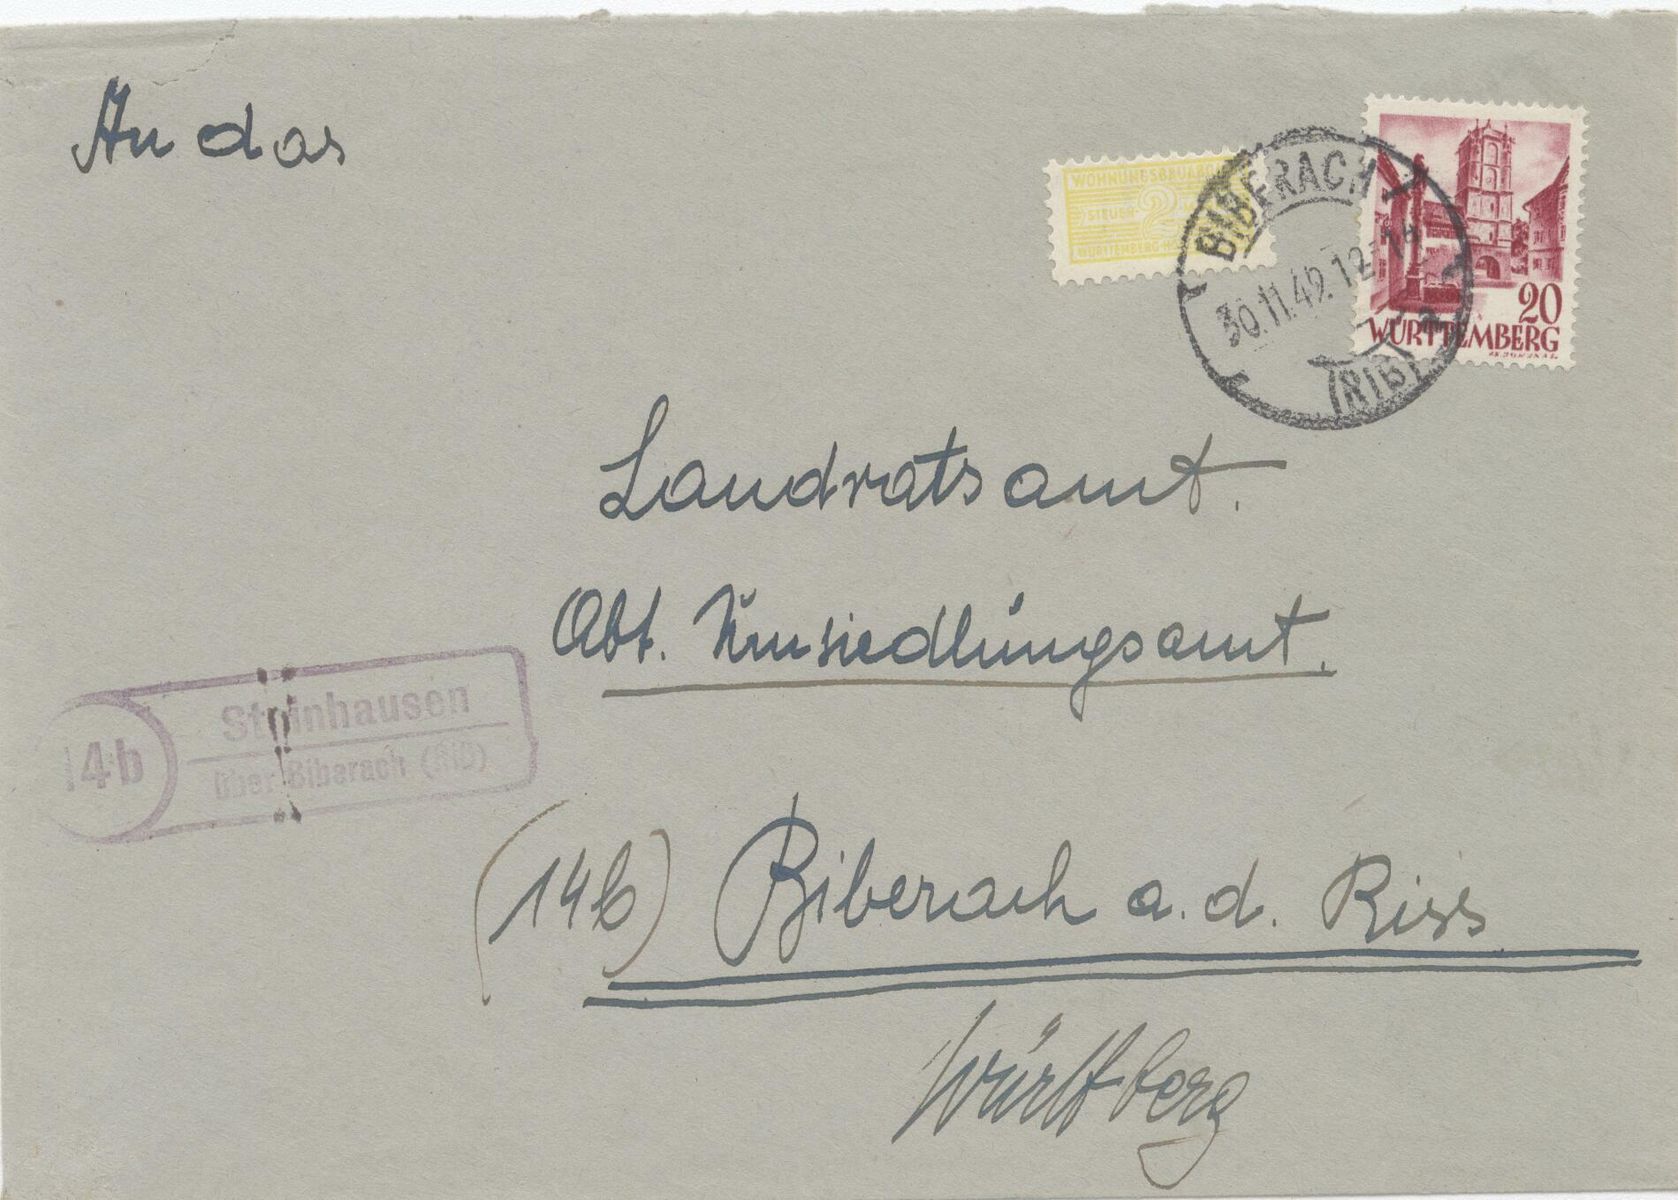 An das
WOHNUNGSBAUABGABE
STEUER 2
WÜRTTEMBERG
BIBERACH
30.11.49.12-14
(RIß)
20
WÜRTTEMBERG
Landratsamt.
Abt. Umsiedlungsamt.
14b
Steinhausen
über Biberach (Riß)
(14b) Biberach a. d. Riss
Württberg